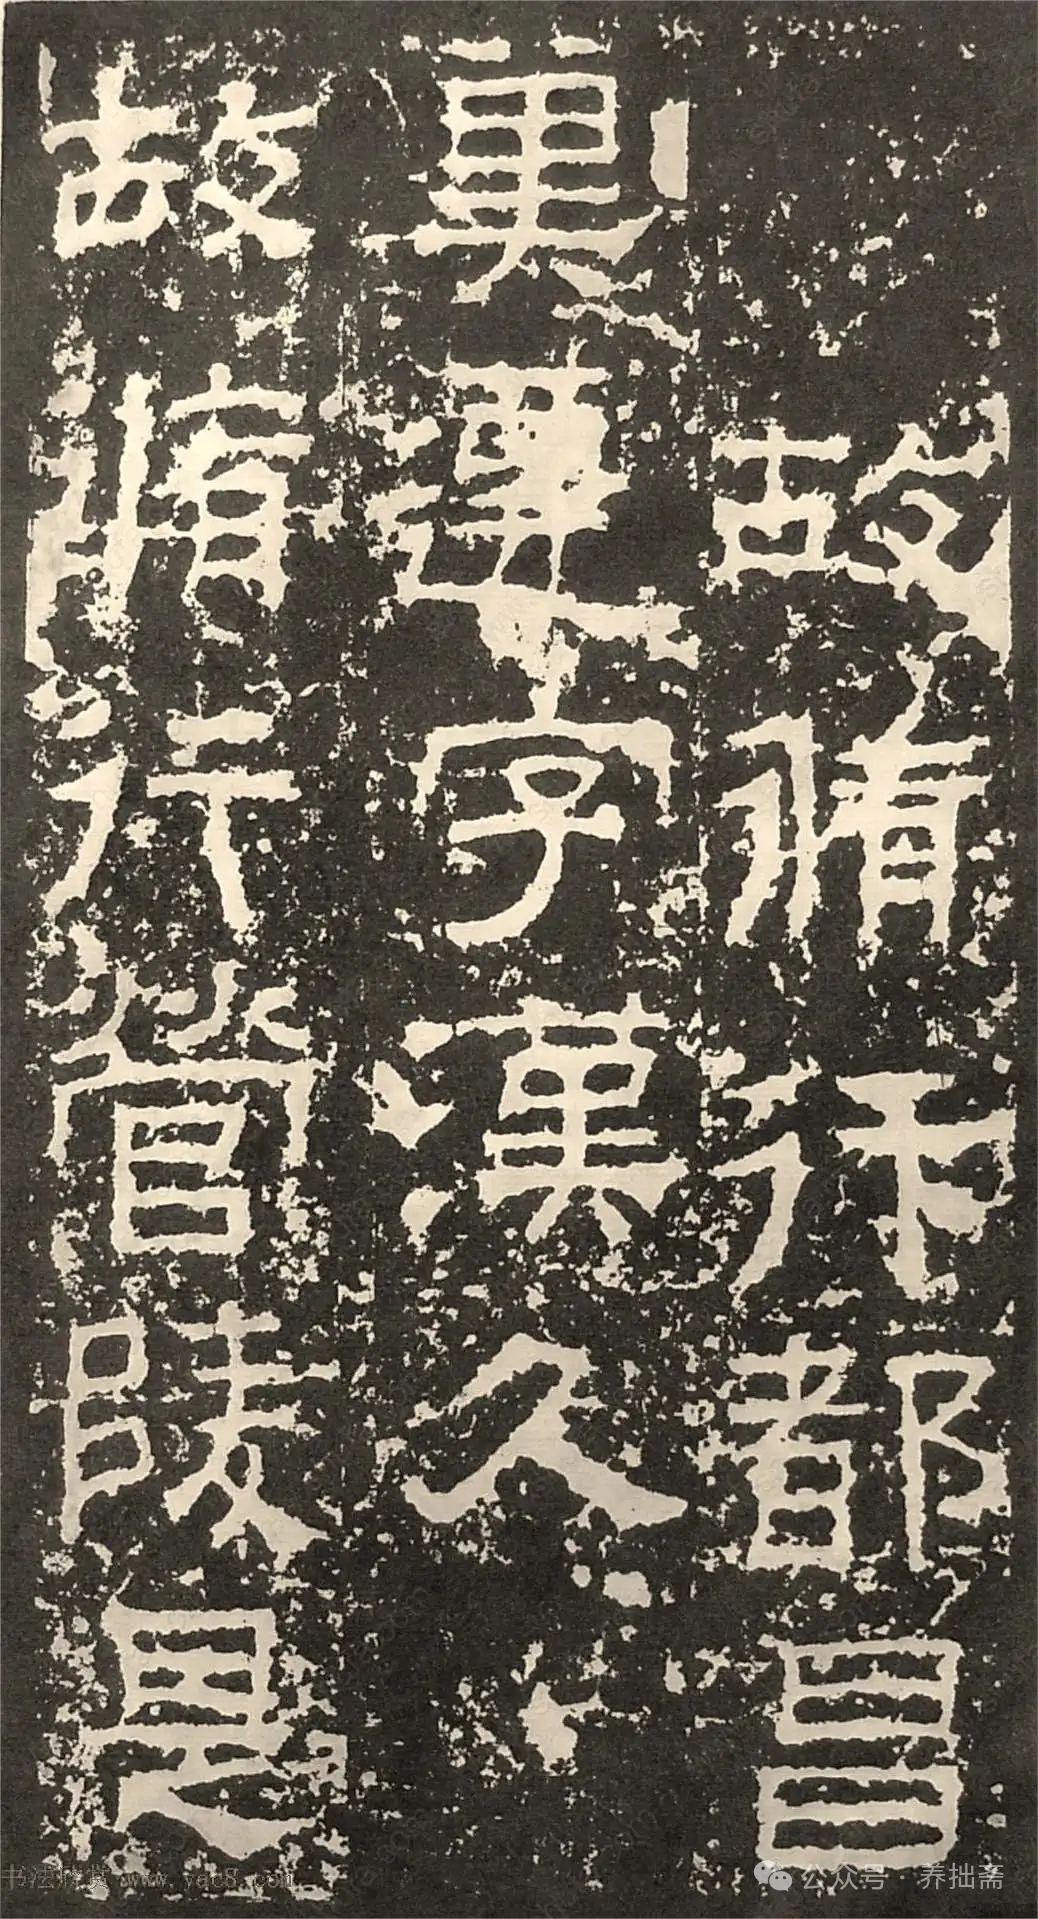 故脩行都昌
冀遷字漢久
故脩行營陵是
书法欣赏 www.yac8.com
公众号·养拙斋